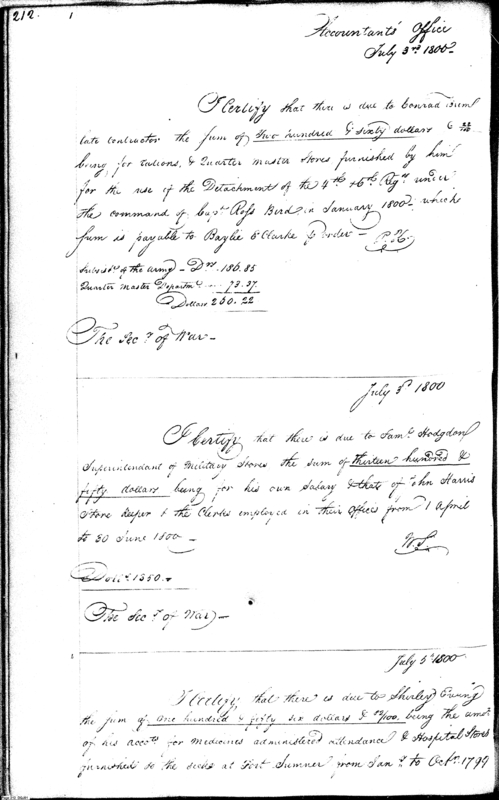 212.
Accountants' Office
July 3rd 1800
I Certify that there is due to Conrad
late contractor the sum of Two hundred & sixty dollars & 22/100
being for rations, & Quarter master Stores furnished by him
for the use of the Detachment of the 4th & 6th Regts under
the command of Capt. Ross Bird in January 1800, which
sum is payable to Baylie & Clarke p order
Subsists of the army - Drs. 186.85
Quarter Master Departmt. 73.37
Dollars 260.22
The Secy. of War
July 3d 1800
I Certify that there is due to Saml. Hodgdon
Superintendant of Military Stores the sum of Thirteen hundred &
fifty dollars being for his own Salary & that of John Harris
Store keeper & the Clerks employed in their Offices from 1 April
to 30 June 1800
W.S.
Dolls. 1350.
The Secy. of War
July 5 1800
I Certify that there is due to Shirley Ewing
the sum of One hundred & fifty six dollars & 12/100 being the amt.
of his accots. for medicines administered attendance & Hospital Stores
furnished to the Sick at Fort Sumner from Jany. to Octr. 1799